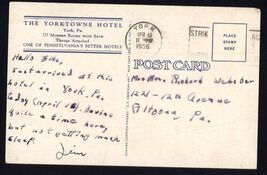 THE YORKTOWNE HOTEL
York, Pa.
275 MODERN ROOMS WITH BATH
Garage Attached
ONE OF PENNSYLVANIA'S BETTER HOTELS
YORK
APR 18
1956
STRIK
PLACE
STAMP
HERE
POST CARD
Hello Mike,
Just arrived at this
hotel in York, Pa.
today (april 18). Having
quite a time here,
but not getting much
sleep.
Jim
Mr + Mrs. Richard Webber
1221-12th Avenue
Altoona,
Pa.